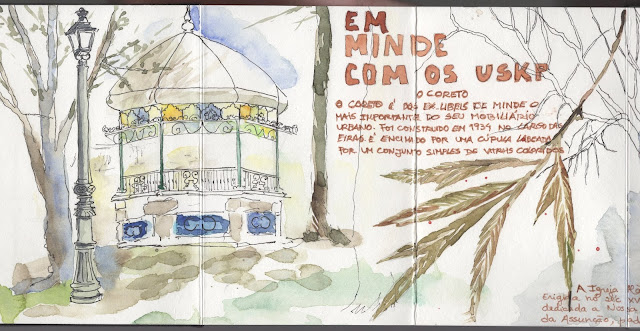 EM
MINDE
COM OS USKP
O CORETO
O CORETO É DOS EX-LIBRIS DE MINDE O
MAIS IMPORTANTE DO SEU MOBILIÁRIO
URBANO. FOI CONSTRUIDO EM 1939 NO LARGO DAS
EIRAS. É ENCIMADO POR UMA CÚPULA LADEADA
POR UM CONJUNTO SIMPLES DE VITRAIS COLORIDOS
A Igreja
Erigida no séc
dedicada a Nossa
da Assunção,